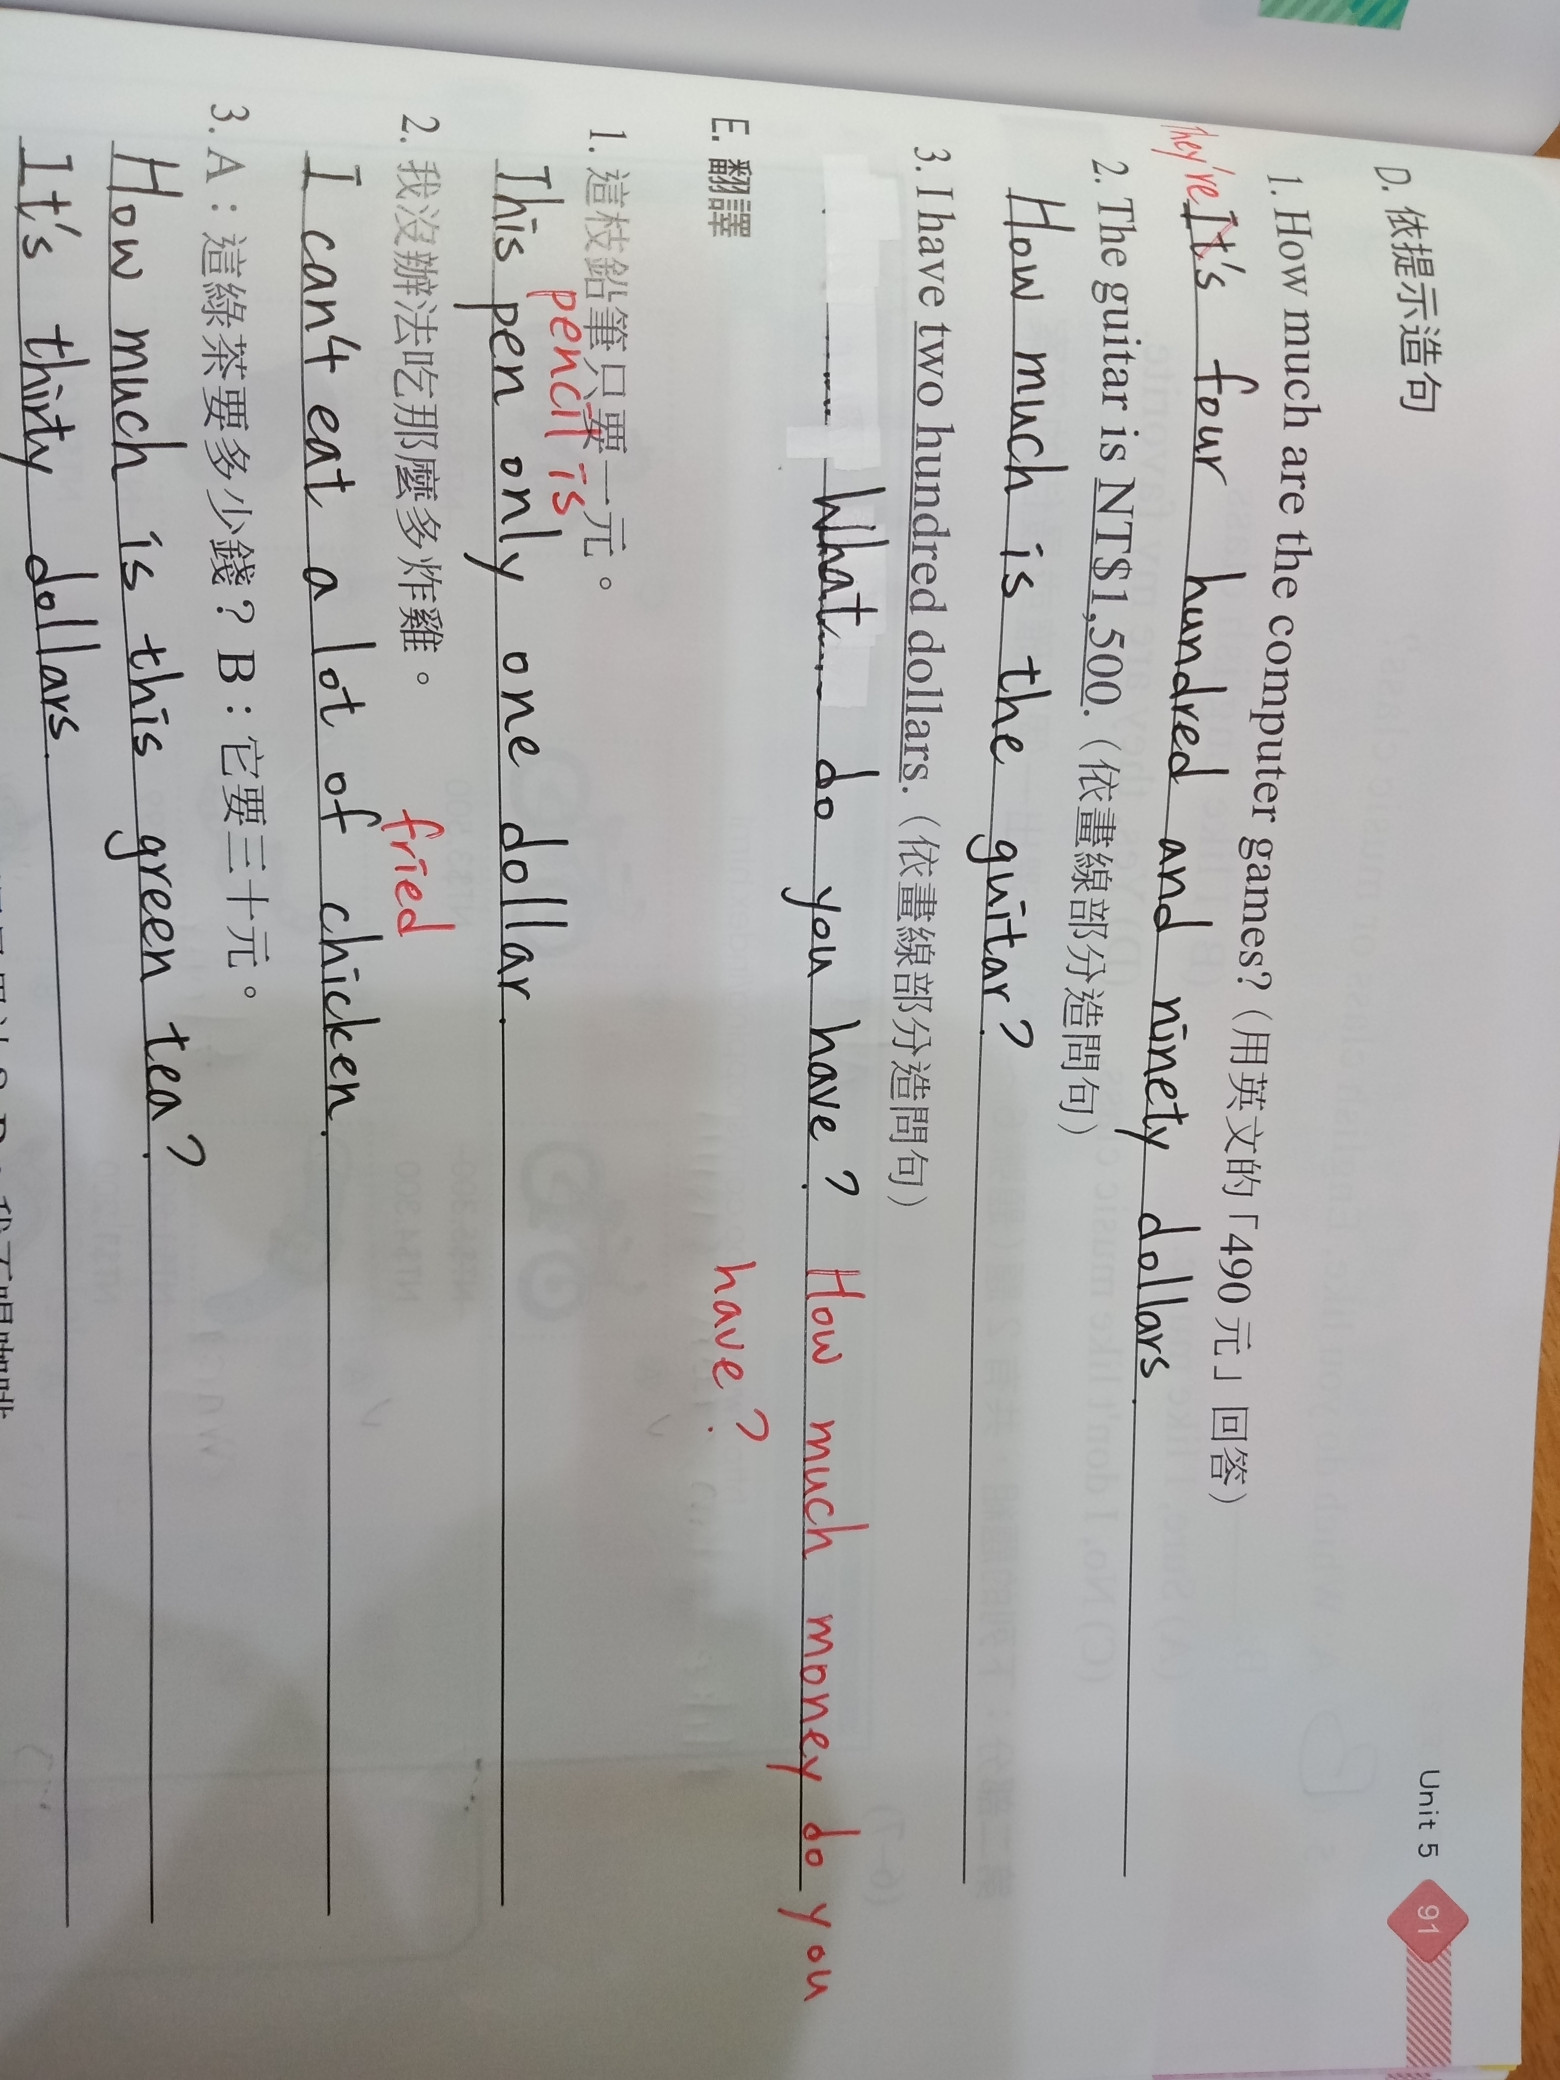 Unit 5 91
D. 依提示造句
1. How much are the computer games?（用英文的「490 元」回答）
They're It's four hundred and ninety dollars.
2. The guitar is NT$1,500.（依畫線部分造問句）
How much is the guitar?
3. I have two hundred dollars.（依畫線部分造問句）
What do you have? How much money do you
have?
E. 翻譯
1. 這枝鉛筆只要一元。
pencil is
This pen only one dollar.
2. 我沒辦法吃那麼多炸雞。
fried
I can4 eat a lot of chicken.
3. A：這綠茶要多少錢？B：它要三十元。
How much is this green tea?
It's thirty dollars.